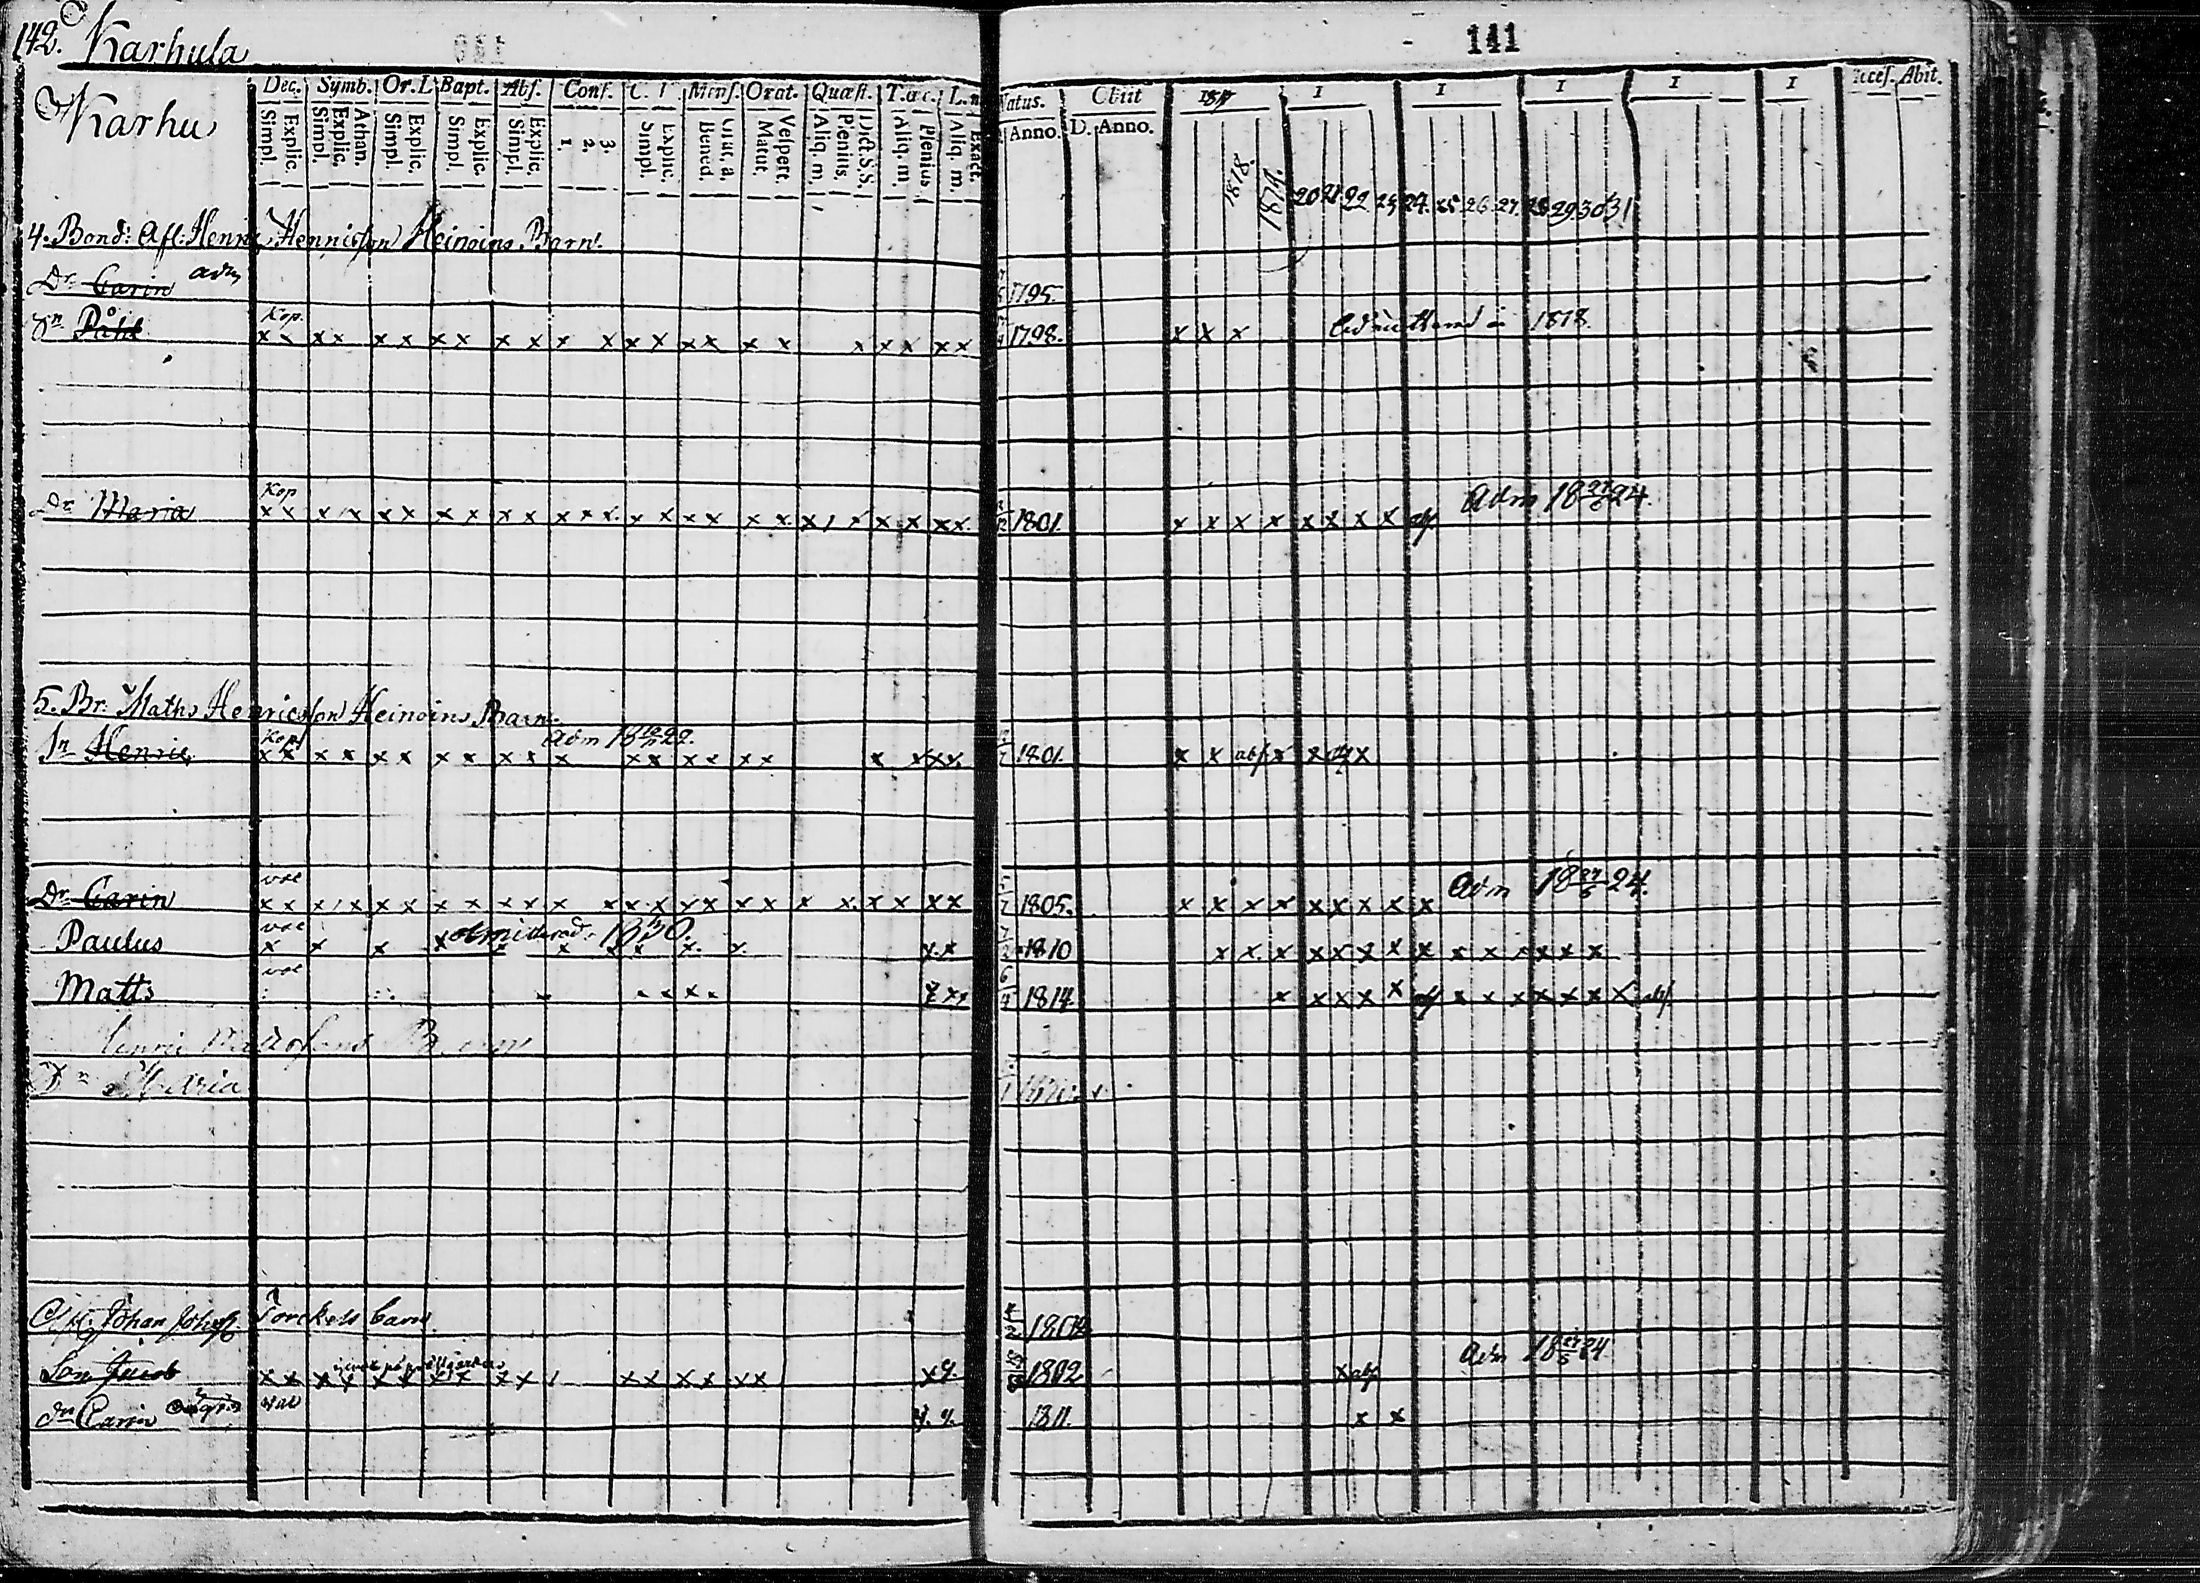 142. Karhula
141
Dec. Symb. Or. L Bapt. Abs. Conf. C. T Mens. Orat. Quæst. T.œc. L.n
Natus. Obiit I I I I I I Acces. Abit.
Karhu
Simpl. Explic. Simpl. Explic. Athan. Simpl. Explic. Simpl. Explic. Simpl. Explic. 1 2. 3. Simpl. Explic. Bened. Grat. a. Matut. Vespert. Aliq. m. Plenius. Dict. S.S. Aliq. m. Plenius. Aliq. m. Exact.
Anno. D. Anno.
1818 1819 20 21 22 23 24. 25 26 27. 28 29 30 31
4. Bond: Afl: Henric Henricsson Heinoins Barn.
Dr. Carin adm 1795.
Sn Påhl Kop. x x x x x x x x x x x x x x x x x x x x x x x x 1798. x x x Admitterad 1818.
Dr Maria Kop x x x x x x x x x x x x x x x x x x x x x x x x 1801. x x x x x x x x abs Adm 18 27/6 24.
5. Br. Matts Henricsson Heinoins Barn.
Sn Henric Kop Adm 18 22. x x x x x x x x x x x x x x x x x x x x x 1801. x x abs x x x
Dr Carin val x x x x x x x x x x x x x x x x x x x x x x 1805. x x x x x x x x x Adm 18 27/6 24.
Paulus val admitterad 1830. x x x x x x x x x x x 1810 x x x x x x x x x x x x x x
Matts val x x x x x x 6/4 1814 x x x x x abs x x x x x x x abs.
Barn
Dr Maria
Afl. Johan Johss. Torckels barn 1802
Son Jacob x x x x x x x x x x x x x x x x x x 1802 x abs Adm 18 27/6 24
Dr Carin val x x 1811. x x